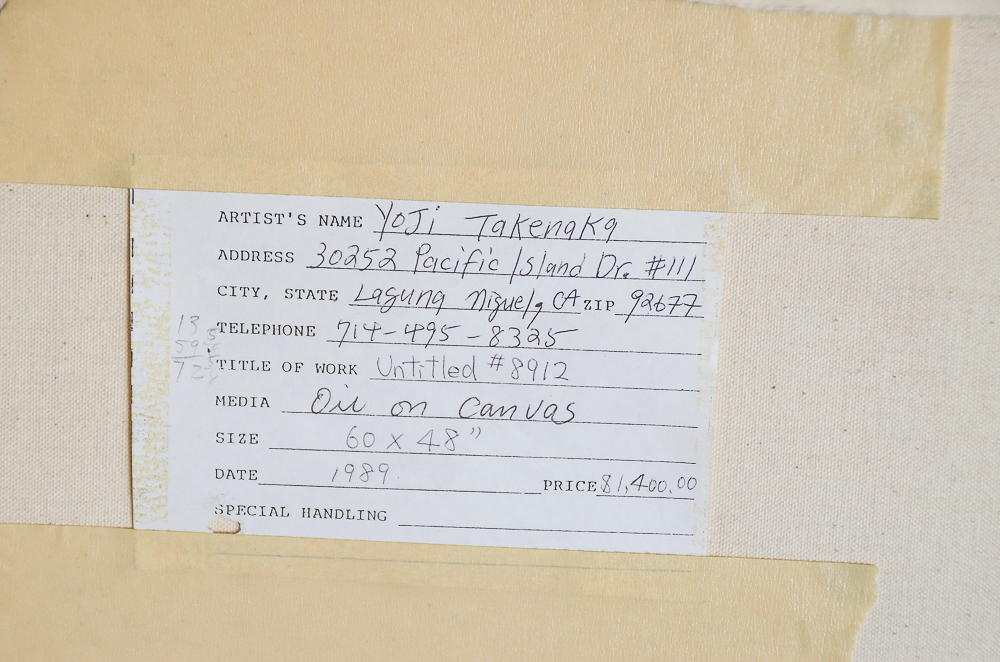 ARTIST'S NAME Yoji Takenaka
ADDRESS 30252 Pacific Island Dr. #111
CITY, STATE Laguna Niguel, CA ZIP 92677
TELEPHONE 714-495-8325
TITLE OF WORK Untitled #8912
MEDIA Oil on Canvas
SIZE 60 x 48"
DATE 1989 PRICE $1,400.00
SPECIAL HANDLING
13
72